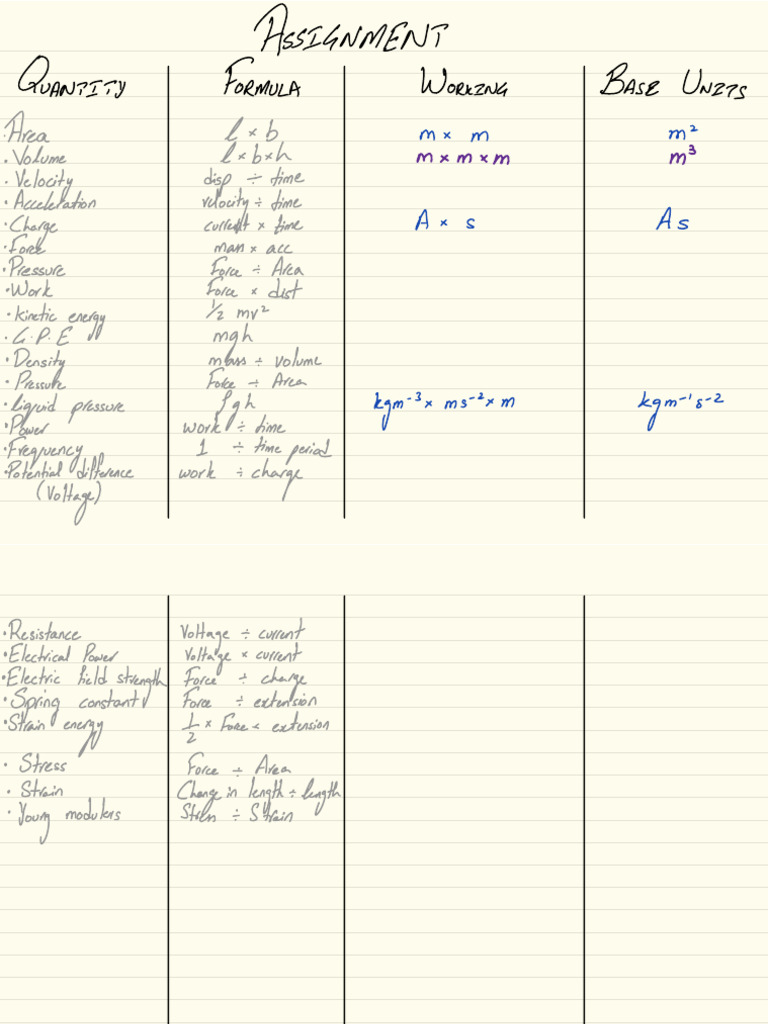 ASSIGNMENT
QUANTITY FORMULA WORKING BASE UNITS
· Area l × b m × m m²
· Volume l × b × h m × m × m m³
· Velocity disp ÷ time
· Acceleration velocity ÷ time
· Charge current × time A × s As
· Force mass × acc
· Pressure Force ÷ Area
· Work Force × dist
· kinetic energy 1/2 mv²
· G.P.E mgh
· Density mass ÷ volume
· Pressure Force ÷ Area
· liquid pressure ρgh kgm⁻³ × ms⁻² × m kgm⁻¹s⁻²
· Power work ÷ time
· Frequency 1 ÷ time period
· Potential difference work ÷ charge
(Voltage)
· Resistance Voltage ÷ current
· Electrical Power Voltage × current
· Electric field strength Force ÷ charge
· Spring constant Force ÷ extension
· Strain energy 1/2 × Force × extension
· Stress Force ÷ Area
· Strain Change in length ÷ length
· Young modulus Stress ÷ Strain